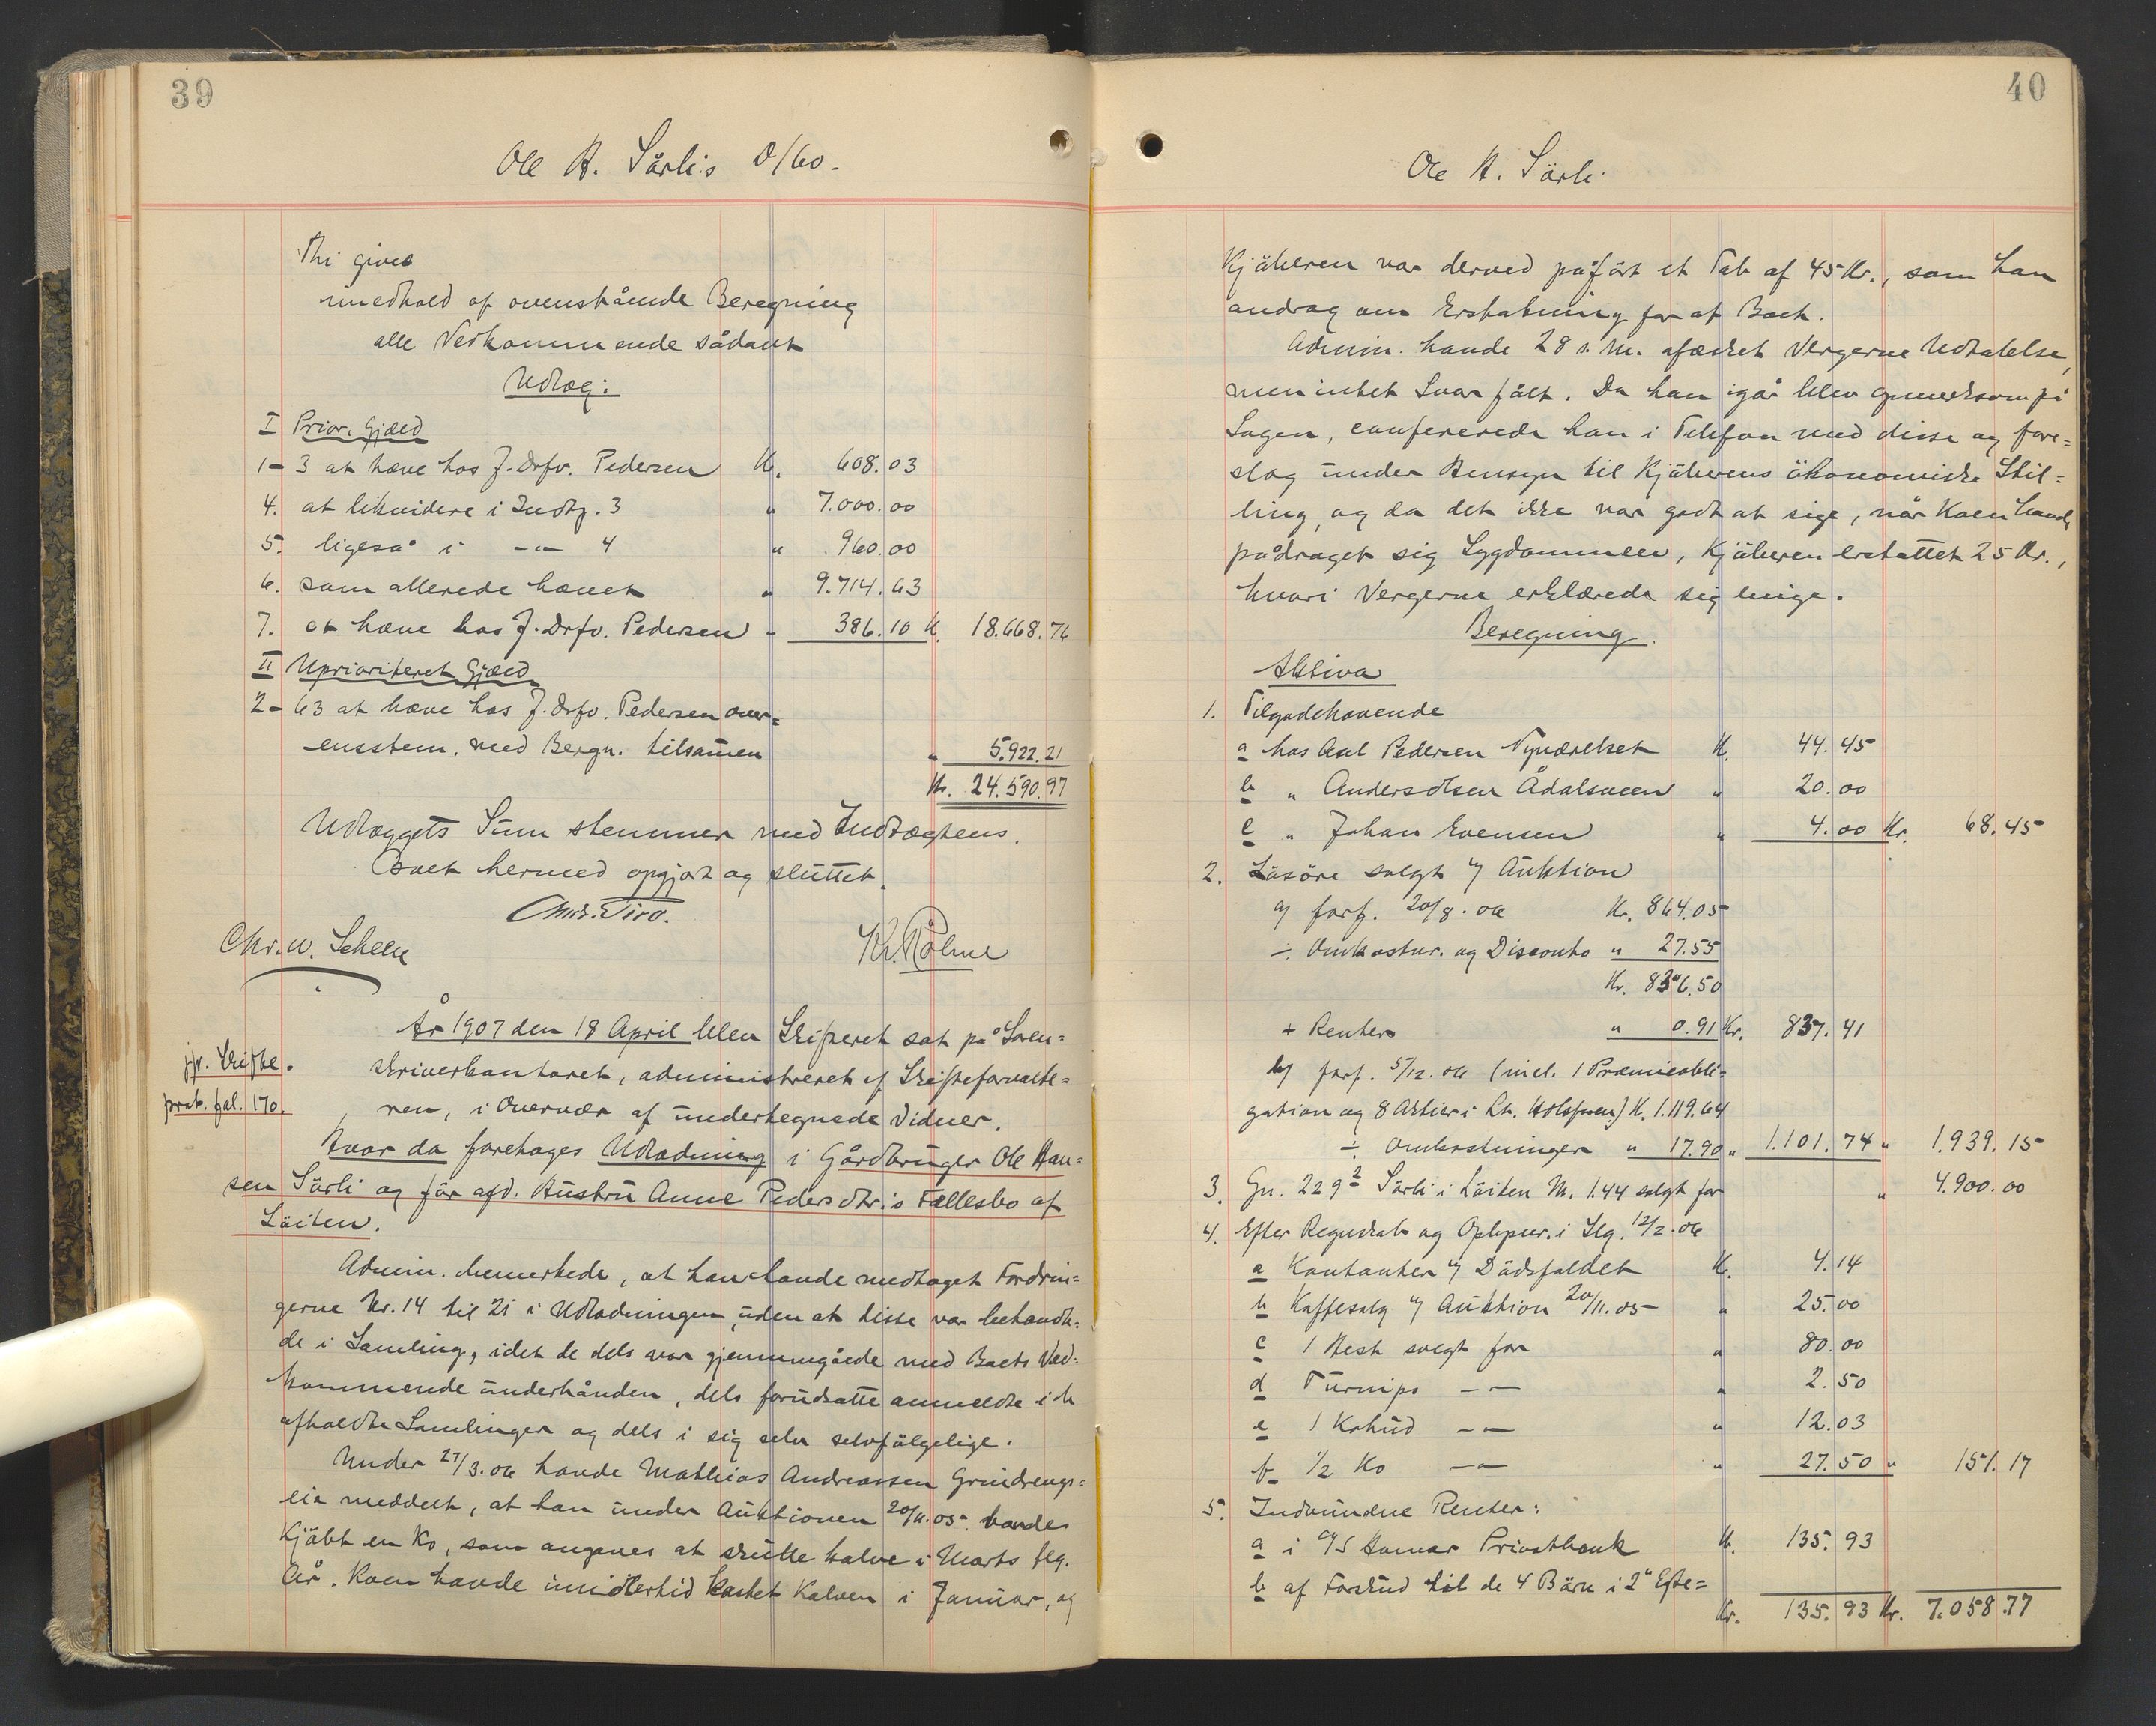 39
Ole H. Sårli's D/bo.
Thi gives
imedhold af ovenstående Beregning
alle Vedkommende sådant
Udlæg:
I Prior. Gjæld
1-3 at hæve hos J. Drfv. Pedersen Kr. 608.03
4. at likvidere i Indtg. 3 " 7.000.00
5. ligeså i -"- 4 " 960.00
6. som allerede hævet " 9.714.63
7. at hæve hos J. Drfv. Pedersen - 386.10 Kr. 18.668.76
II Uprioriteret Gjæld
2-63 at hæve hos J. Drfv. Pedersen over=
ensstem. med Bergn. tilsamen " 5.922.21
Kr. 24.590.97
Udlæggets Sum stemmer med Indtægtens.
Boet hermed opgjort og sluttet.
Chr. W. Scheen Kr. Rålme
År 1907 den 18 April blev Skifteret sat på Soren=
jfr. Skifte.
skriverkontoret, administreret af Skifteforvalte=
prot. fol. 170.
ren, i Overvær af undertegnede Vidner.
Hvor da foretages Udlodning i Gårdbruger Ole Han=
sen Sörli og för afd. Hustru Anne Pedersdtr.'s Fællesbo af
Löiten.
Admin. bemerkede, at han havde medtaget Fordrin=
gerne Nr. 14 til 21 i Udlodningen, uden at disse var behandle=
de i Samling, idet de dels var gjennemgåede med Boets Ved=
kommende underhånden, dels forudsatte anmeldte i de
afholdte Samlinger og dels i sig selv selvfölgelige.
Under 27/3.06 havde Mathias Andreassen Grindrengs=
eie meddelt, at han under Auktionen 20/11.05 havde
kjöbt en Ko, som angaves at skulle kalve i Marts flg.
År. Koen havde imidlertid kastet Kalven i Januar, og
40
Ole H. Sörli
Kjöberen var derved påfört et Tab af 45 Kr., som han
androg om Erstatning for af Boet.
Admin. havde 28 s. M. afæsket Vergerne Udtalelse,
men intet Svar fået. Da han igår blev opmerksom på
Sagen, confererede han i Telefon med disse og fore=
slog under Hensyn til Kjöberens ökonomiske Stil=
ling, og da det ikke var godt at sige, når Koen havde
pådraget sig Sygdommen, Kjöberen erstattet 25 Kr.,
hvori Vergerne erklærede sig enige.
Beregning.
Aktiva
1. Tilgodehavende
a hos Axel Pedersen Nyværelset Kr. 44.45
b " Anders Olsen Ådalsveen " 20.00
c " Johan Evensen " 4.00 Kr. 68.45
2. Lösöre solgt v/ Auktion
a/ forf. 20/8.06 Kr. 864.05
÷ Omkostn. og Disconto " 27.55
Kr. 836.50
+ Renter " 0.91 Kr. 837.41
b/ forf. 5/12.06 (incl. 1 Præmieobli=
gation og 8 Aktier i Lt. Holsfoen) Kr. 1.119.64
÷ Omkostninger " 17.90 " 1.101.74 " 1.939.15
3. Gn. 229 2 Sörli i Löiten M. 1.44 solgt for " 4.900.00
4. Efter Regnskab og Oplysn. i Slg. 12/2.06
a Kontanter v/ Dödsfaldet Kr. 4.14
b Kaffesalg v/ Auktion 20/11.05 " 25.00
c 1 Hest solgt for " 80.00
d Turnips -"- " 2.50
e 1 Kohud -"- " 12.03
f 1/2 Ko -"- " 27.50 " 151.17
5. Indvundne Renter:
a i A/S Hamar Privatbank Kr. 135.93
b af Forskud til de 4 Börn i 2" Egte=
Kr. 135.93 Kr. 7.058.77